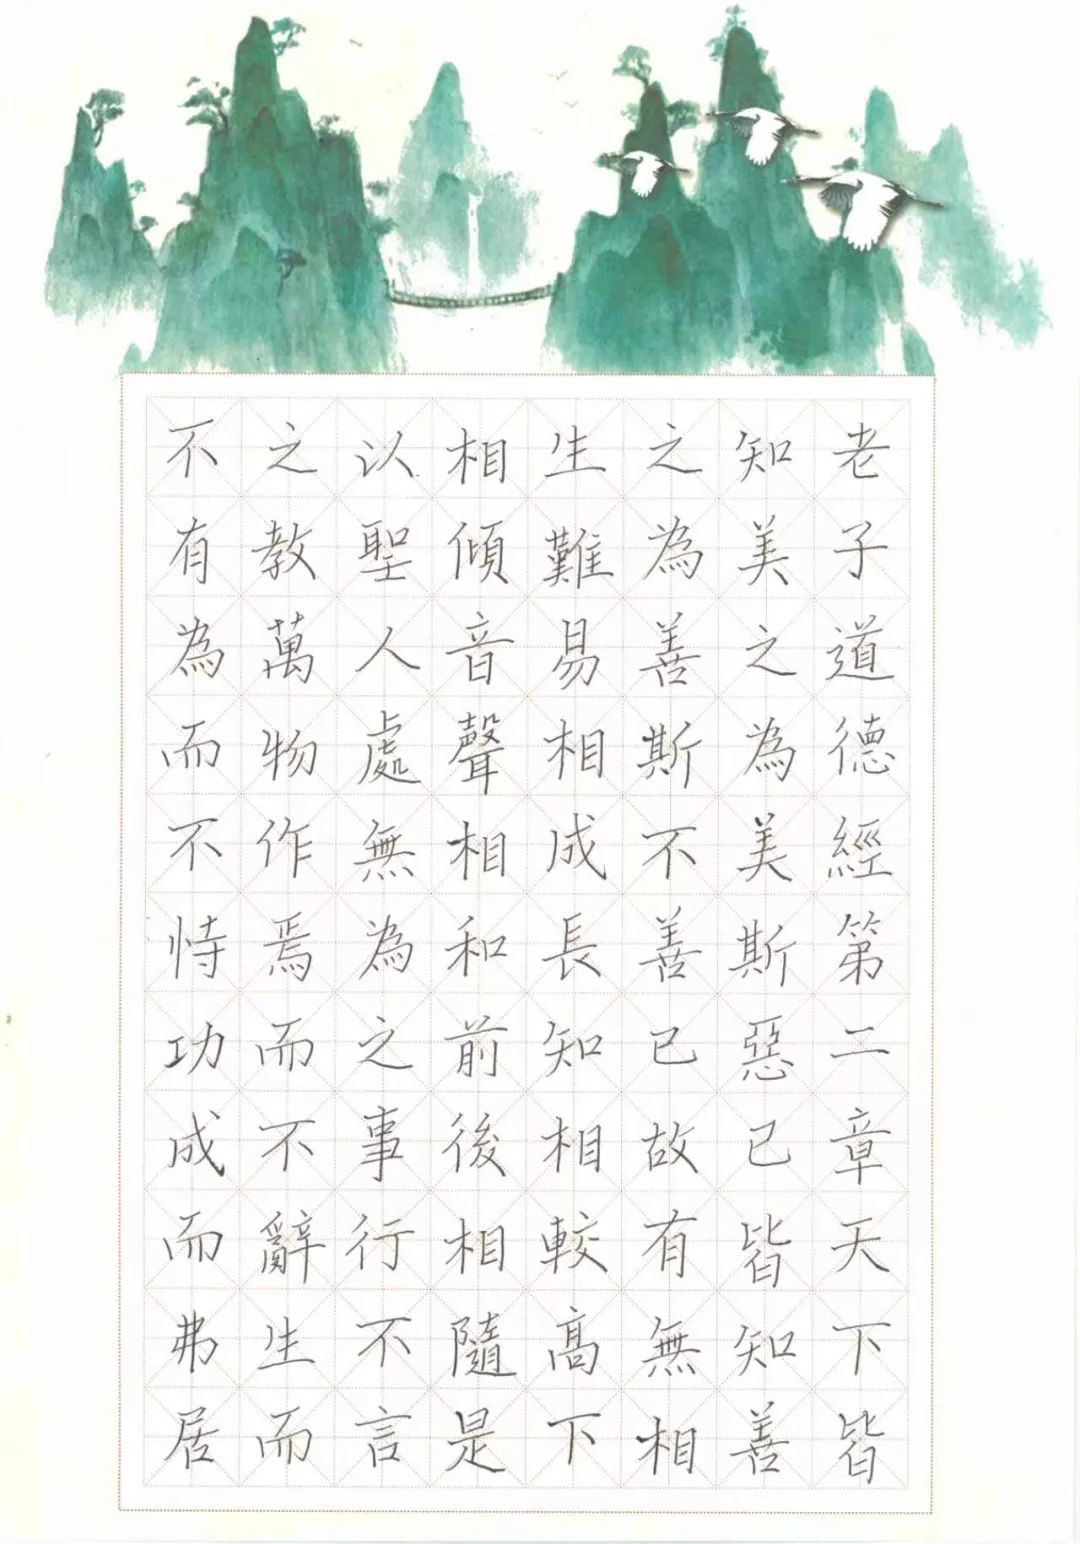 老子道德經第二章天下皆
知美之為美斯惡已皆知善
之為善斯不善已故有無相
生難易相成長知相較高下
相傾音聲相和前後相隨是
以聖人處無為之事行不言
之教萬物作焉而不辭生而
不有為而不恃功成而弗居